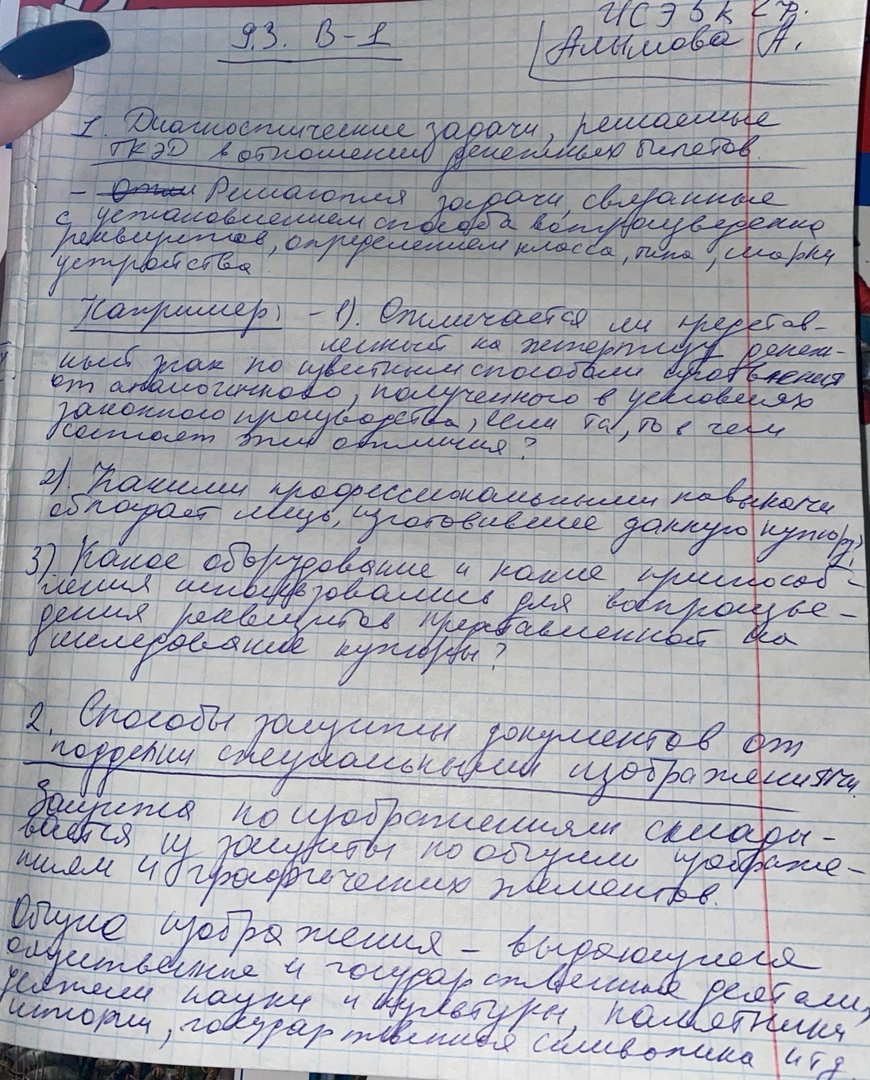 93. В-1
ИСЭ 5к 2ф.
Алымова А.
1. Диагностические задачи, решаемые
ТКЭД в отношении денежных билетов.
- Решаются задачи, связанные
с установлением способа воспроизведения
реквизитов, определением класса, типа, марки
устройства.
Например: - 1). Отличается ли представ-
ленный на экспертизу денеж-
ный знак по известным способам изготовления
от аналогичного, полученного в условиях
законного производства, если та, то в чем
состоят эти отличия?
2). Какими профессиональными навыками
обладает лицо, изготовившее данную купюру?
3) Какое оборудование и какие приспособ-
ления использовались для воспроизве-
дения реквизитов представленной на
исследование купюры?
2. Способы защиты документов от
подделки специальными изображениями.
Защита по изображениям склады-
вается из защиты по общим изображе-
ниям и графических элементов.
Общие изображения - выдающиеся
общественные и государственные деятели,
деятели науки и культуры, памятники
истории, государственная символика и т д